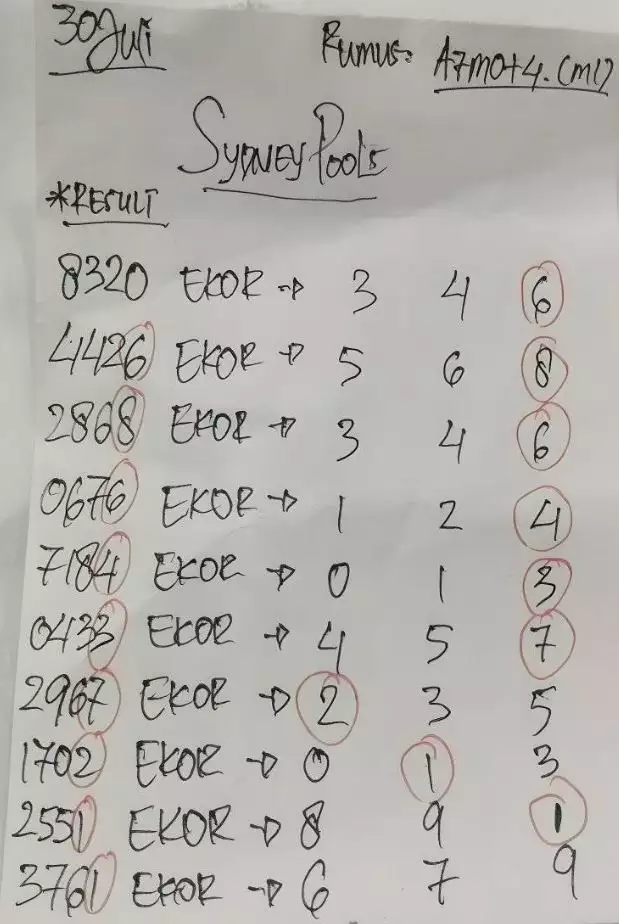 30 Juli Rumus: A7M0+4.CM12
SYDNEY Pools
*RESULT
8320 EKOR → 3 4 6
4426 EKOR → 5 6 8
2868 EKOR → 3 4 6
0676 EKOR → 1 2 4
7184 EKOR → 0 1 3
0433 EKOR → 4 5 7
2967 EKOR → 2 3 5
1702 EKOR → 0 1 3
2551 EKOR → 8 9 1
3761 EKOR → 6 7 9